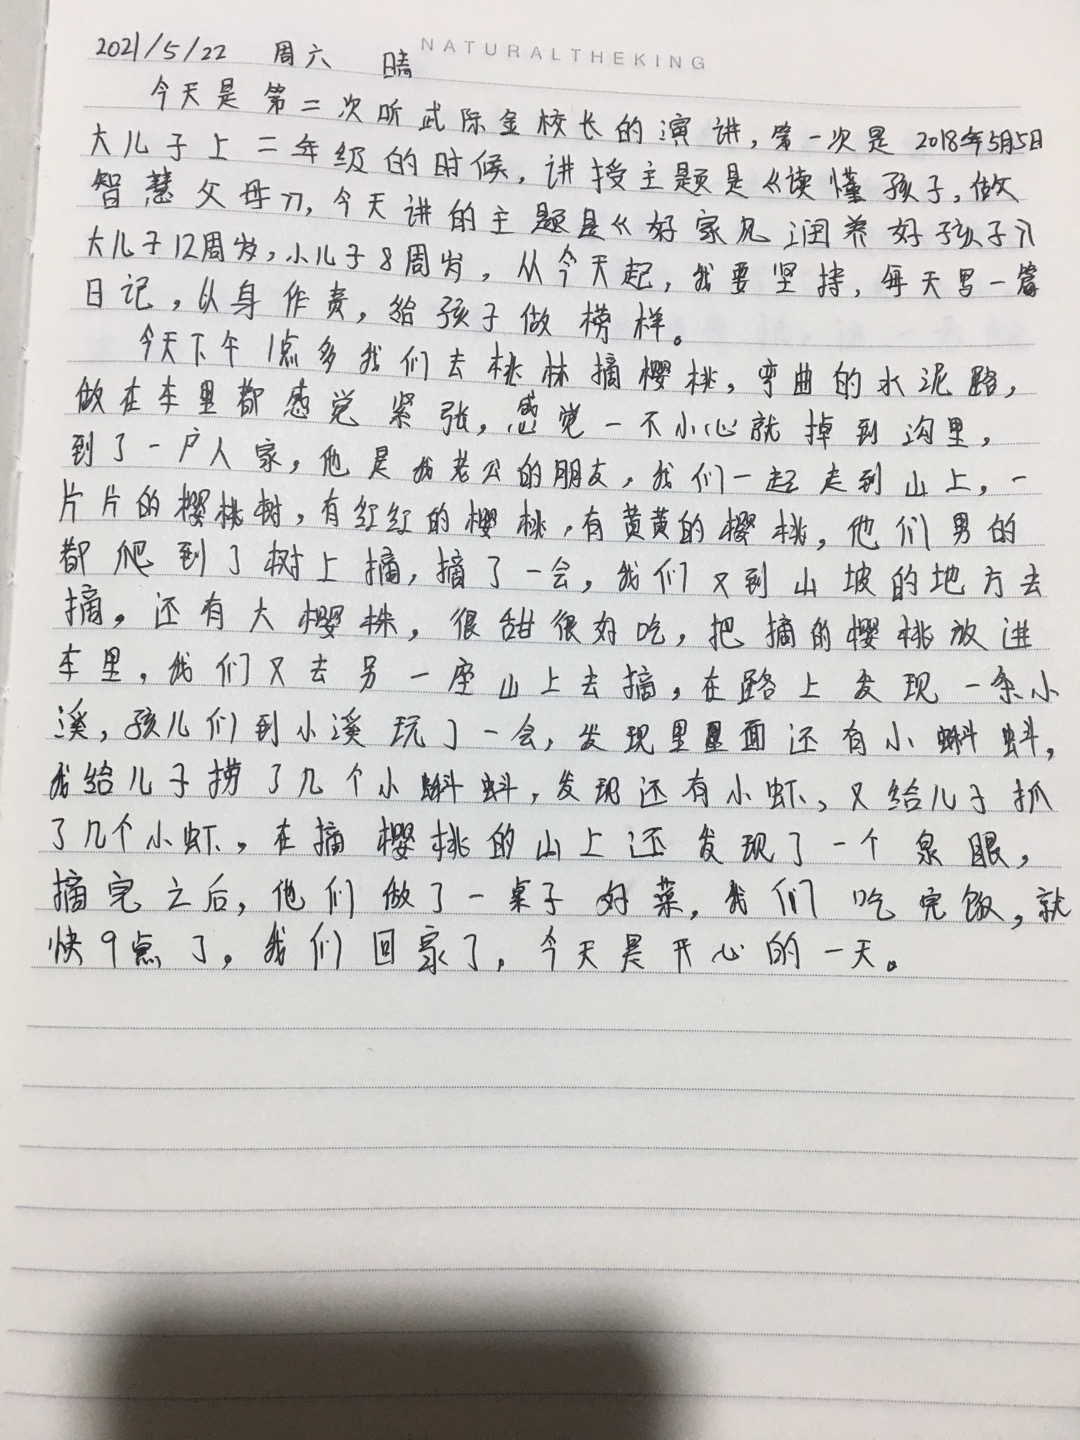 NATURALTHEKING
2021/5/22 周六 晴
今天是第二次听武际金校长的演讲，第一次是2018年5月5日
大儿子上二年级的时候，讲授主题是《读懂孩子，做
智慧父母》，今天讲的主题是《好家风润养好孩子》
大儿子12周岁，小儿子8周岁，从今天起，我要坚持，每天写一篇
日记，以身作责，给孩子做榜样。
今天下午1点多我们去桃林摘樱桃，弯曲的水泥路，
做在车里都感觉紧张，感觉一不小心就掉到沟里，
到了一户人家，他是我老公的朋友，我们一起走到山上，一
片片的樱桃树，有红红的樱桃，有黄黄的樱桃，他们男的
都爬到了树上摘，摘了一会，我们又到山坡的地方去
摘。还有大樱株，很甜很好吃，把摘的樱桃放进
车里，我们又去另一座山上去摘，在路上发现一条小
溪，孩儿们到小溪玩了一会，发现里面还有小蝌蚪，
我给儿子捞了几个小蝌蚪，发现还有小虾、又给儿子抓
了几个小虾。在摘樱桃的山上还发现了一个泉眼，
摘完之后，他们做了一桌子好菜，我们吃完饭，就
快9点了。我们回家了，今天是开心的一天。